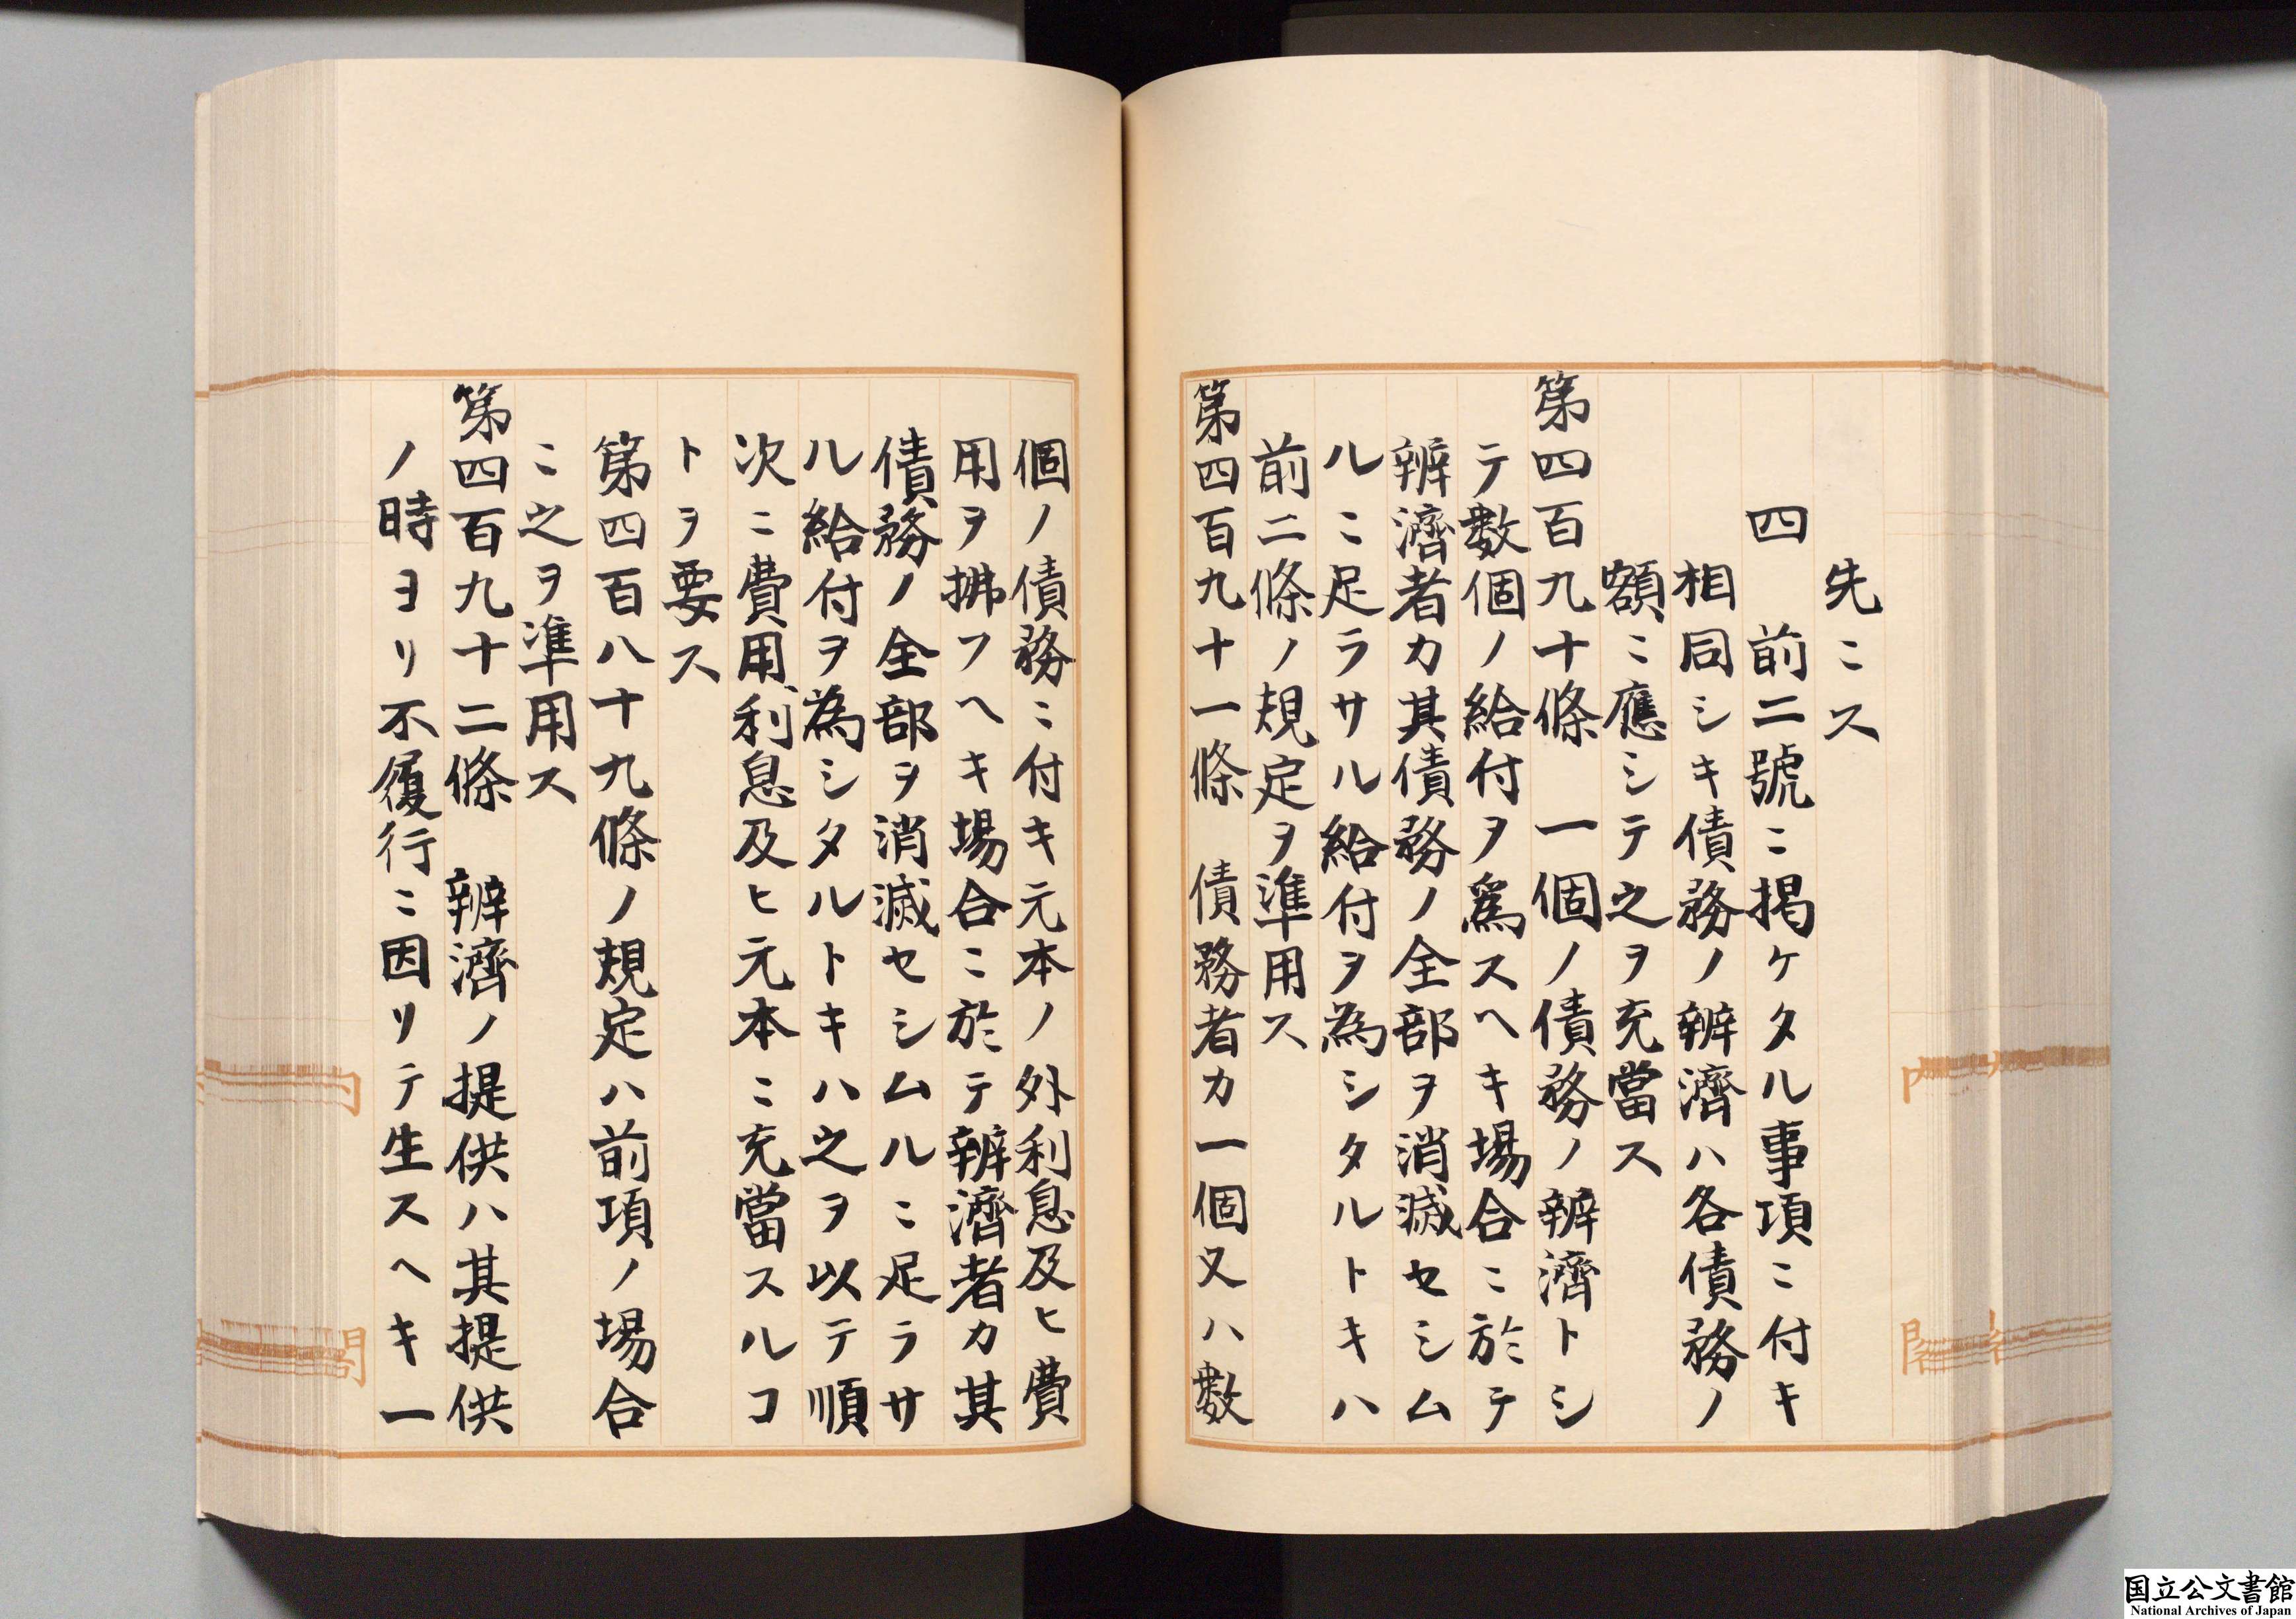 先ニス
四　前二號ニ掲ケタル事項ニ付キ
相同シキ債務ノ辨濟ハ各債務ノ
額ニ應シテ之ヲ充當ス
第四百九十條　一個ノ債務ノ辨濟トシ
テ數個ノ給付ヲ爲スヘキ場合ニ於テ
辨濟者カ其債務ノ全部ヲ消滅セシム
ルニ足ラサル給付ヲ為シタルトキハ
前二條ノ規定ヲ準用ス
第四百九十一條　債務者カ一個又ハ數
個ノ債務ニ付キ元本ノ外利息及ヒ費
用ヲ拂フヘキ場合ニ於テ辨濟者カ其
債務ノ全部ヲ消滅セシムルニ足ラサ
ル給付ヲ為シタルトキハ之ヲ以テ順
次ニ費用、利息及ヒ元本ニ充當スルコ
トヲ要ス
第四百八十九條ノ規定ハ前項ノ場合
ニ之ヲ準用ス
第四百九十二條　辨濟ノ提供ハ其提供
ノ時ヨリ不履行ニ因リテ生スヘキ一
国立公文書館
National Archives of Japan